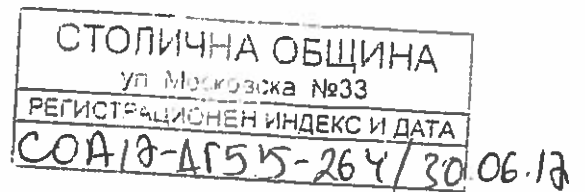 СТОЛИЧНА ОБЩИНА
ул. Московска №33
РЕГИСТРАЦИОНЕН ИНДЕКС И ДАТА
СОА17-ДГ55-264/30.06.17